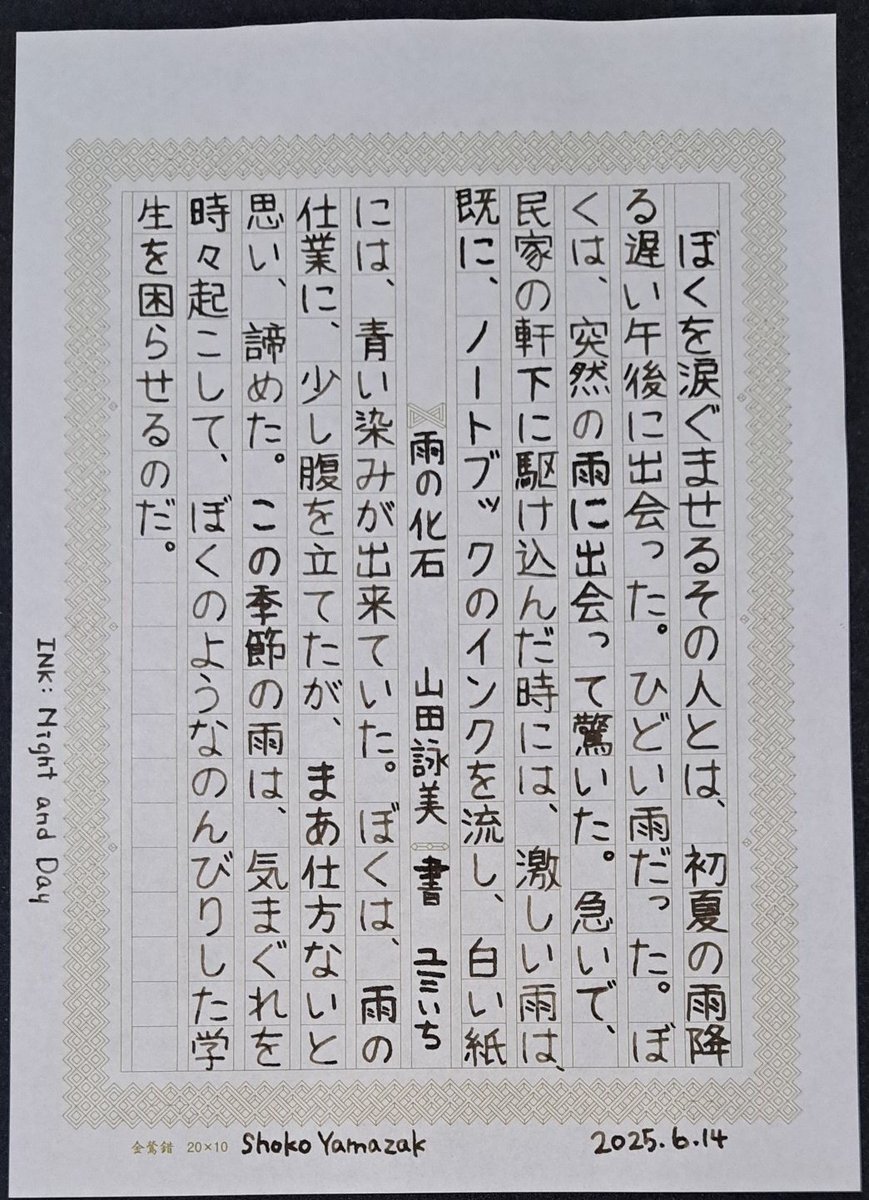 ぼくを涙ぐませるその人とは、初夏の雨降
る遅い午後に出会った。ひどい雨だった。ぼ
くは、突然の雨に出会って驚いた。急いで、
民家の軒下に駆け込んだ時には、激しい雨は、
既に、ノートブックのインクを流し、白い紙
雨の化石 山田詠美 書 ユミいち
には、青い染みが出来ていた。ぼくは、雨の
仕業に、少し腹を立てたが、まあ仕方ないと
思い、諦めた。この季節の雨は、気まぐれを
時々起こして、ぼくのようなのんびりした学
生を困らせるのだ。
INK: Night and Day
金鶯錯 20×10 Shoko Yamazak 2025.6.14